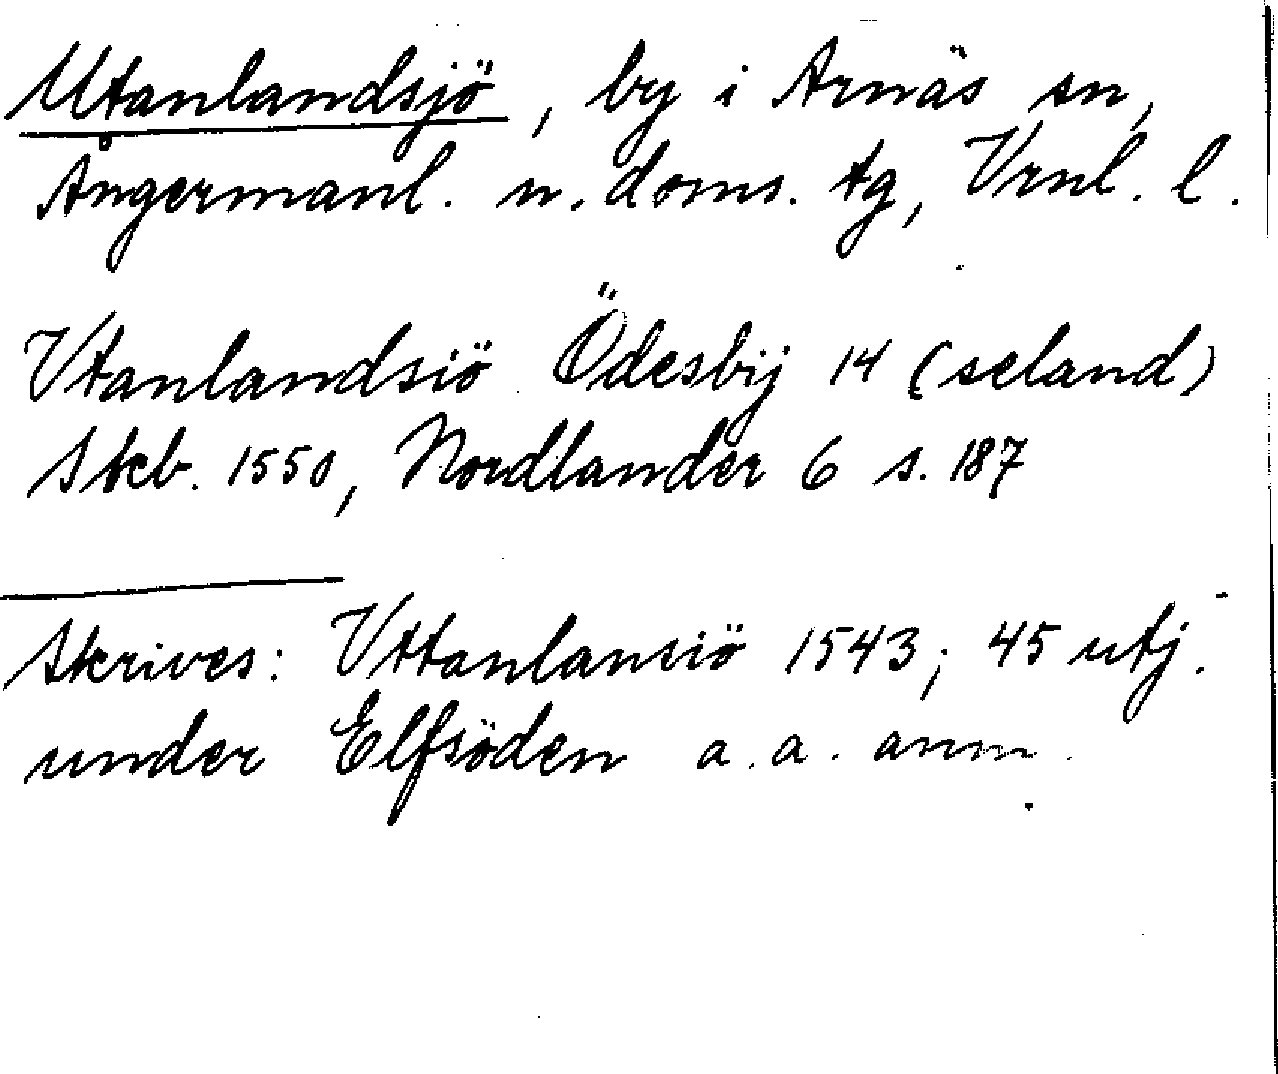 Utanlandsjö, by i Arnäs sn,
Ångermanl. n. doms. tg, Vrnl. l.
Vtanlandsiö Ödesbÿ 14 (seland)
Skb. 1550, Nordlander 6 s. 187
Skrives: Vttanlansiö 1543; 45 utj.
under Elfsöden a. a. anm.